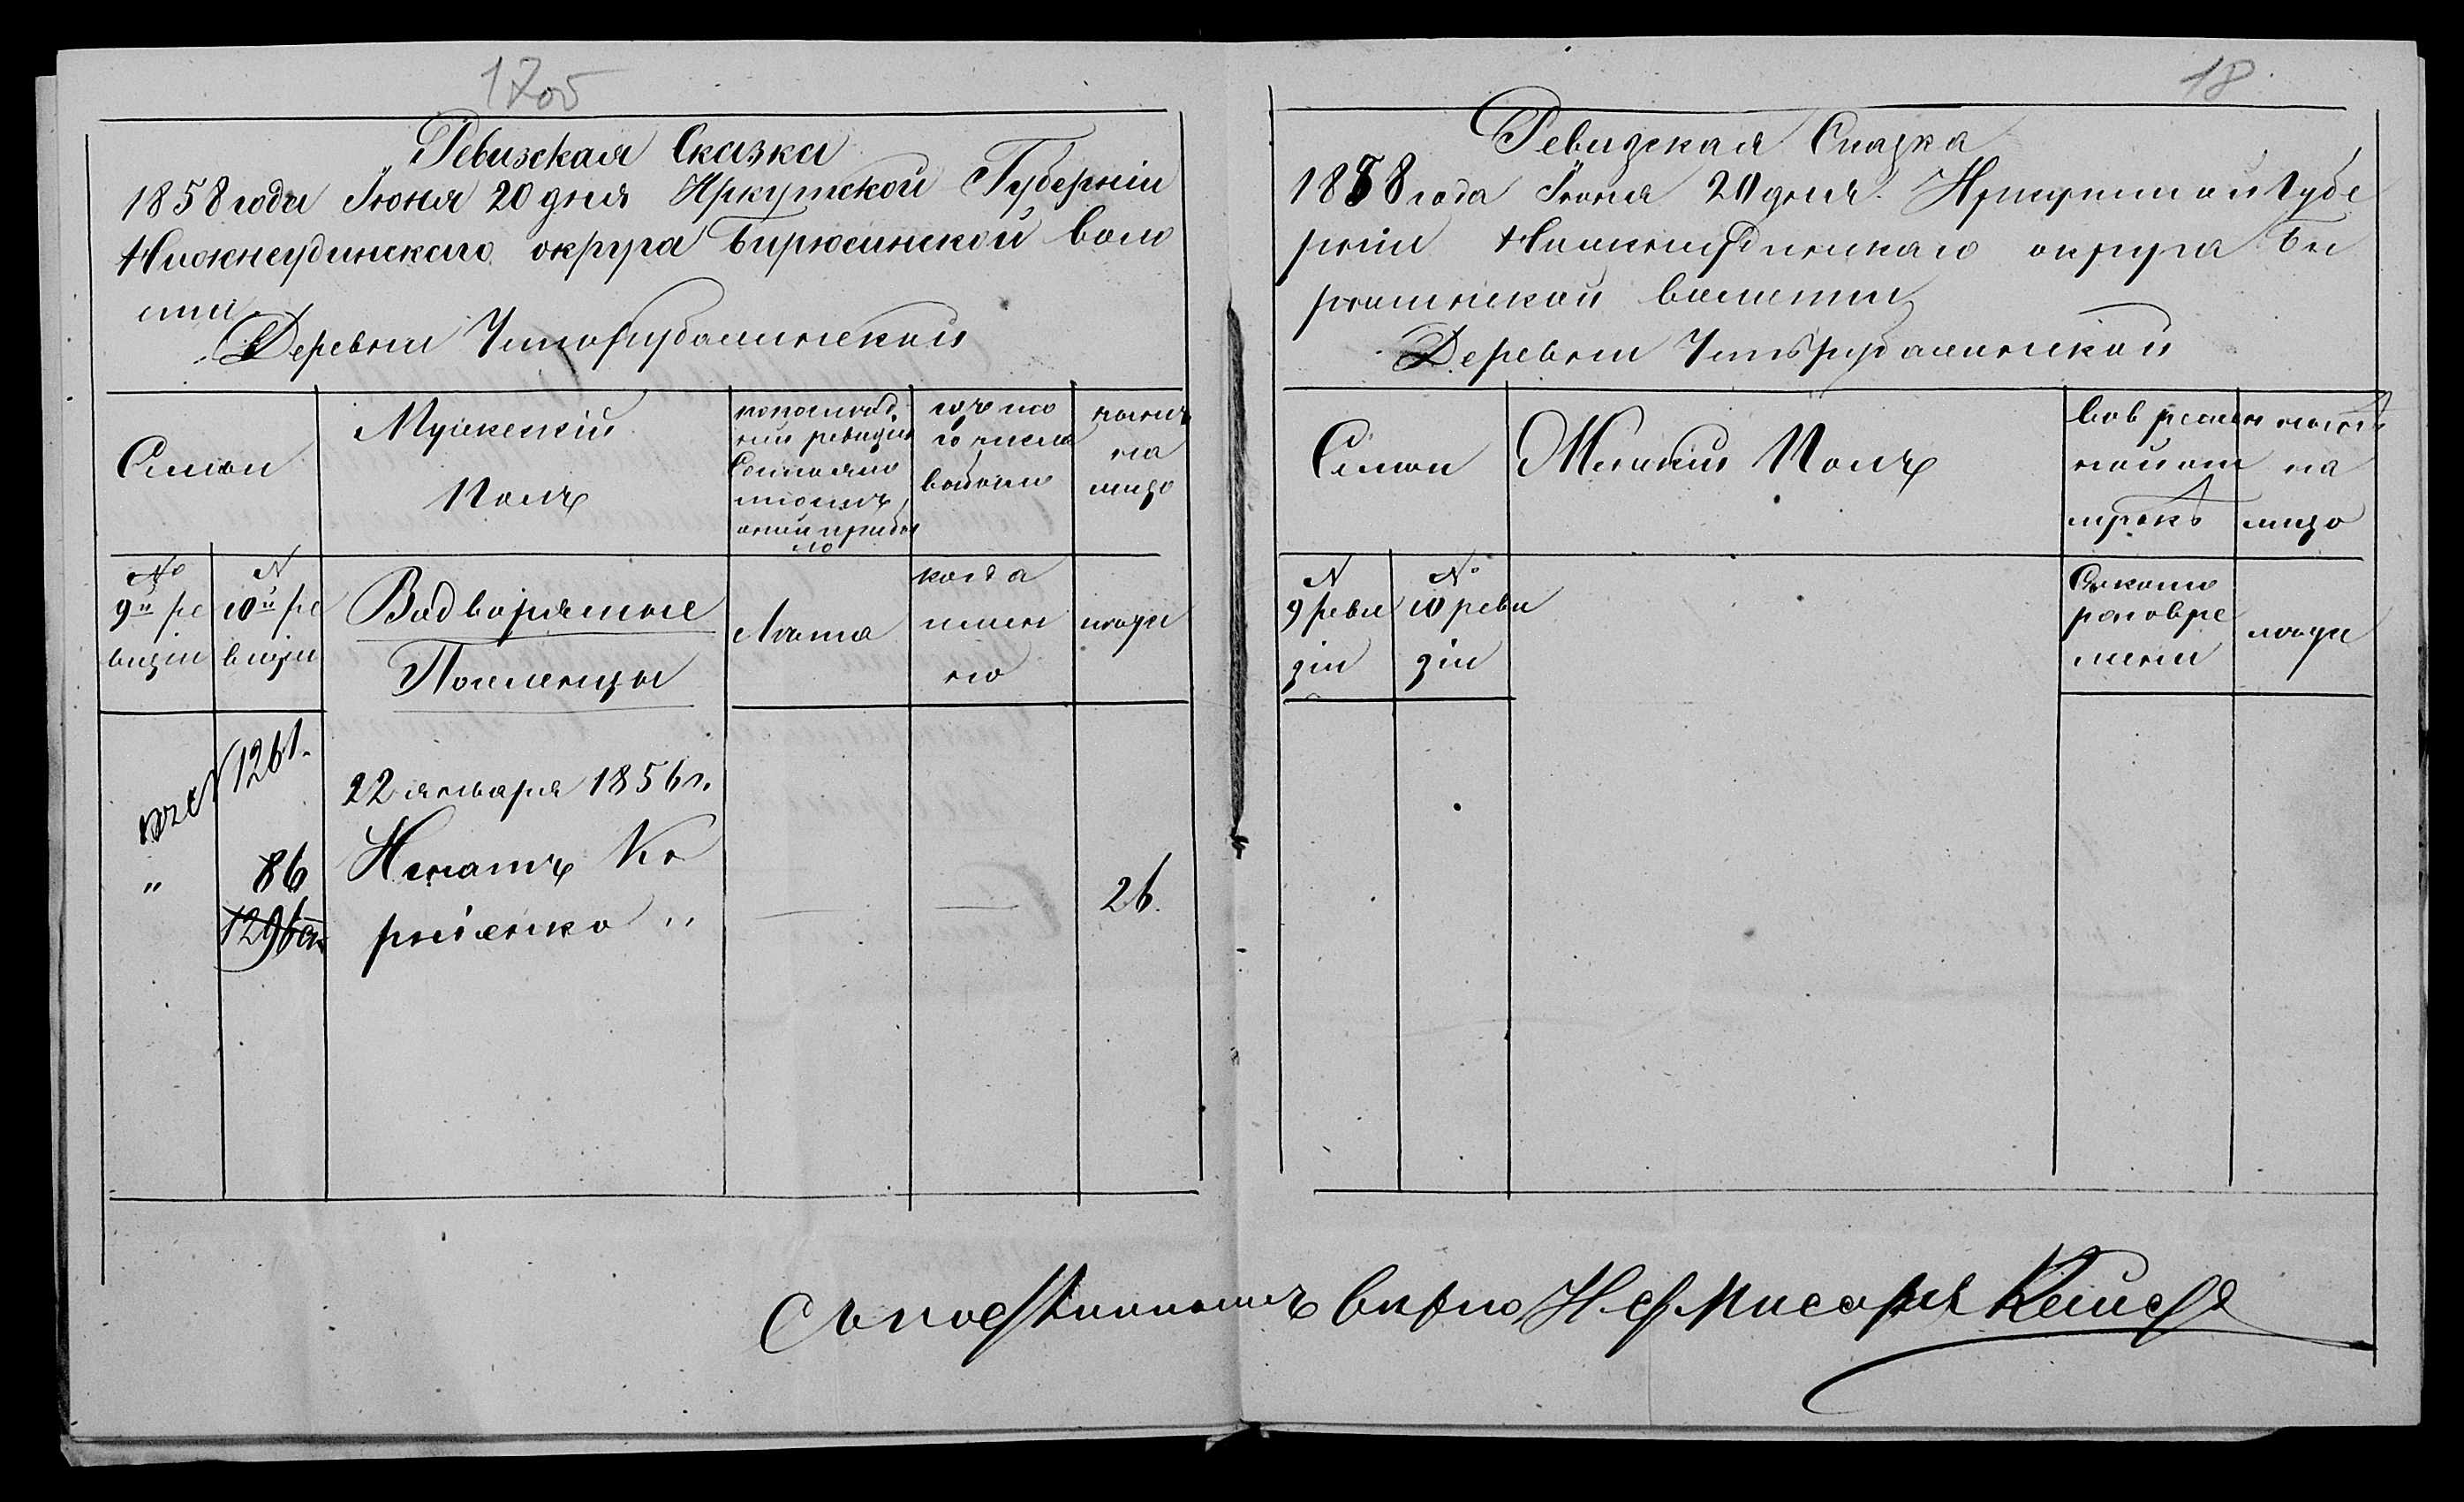 17об
Ревизская Сказка
1858 года Июня 20 дня Иркутской Губерніи
Нижнеудинскаго округа Бирюсинской воло
сти
Деревни
Семьи
Мужескій
Полъ
по послѣд
ней ревизіи
Состояло
и послѣ
оной прибы
ло
изъ то
го числа
выбыло
нынѣ
на
лицо
№
9й ре
визіи
N
10й ре
визіи
Водворяемые
Поселенцы
Лѣта
когда
имен
но
лѣта
1261.
22 января 1856 г.
"
86
Игнатъ Ко
рніенко "
26.
18
Ревизская Сказка
1858 года Июня 20 дня Иркутской Губе
рніи Нижнеудинскаго округа Би
рюсинской волости
Деревни
Семьи
Женскій Полъ
Во време
нной от
лучкѣ
нынѣ
на
лицо
N
9 реви
зіи
№
10 реви
зіи
Съ кото
раго вре
мени
лѣта
Съ подлиннымъ вѣрно